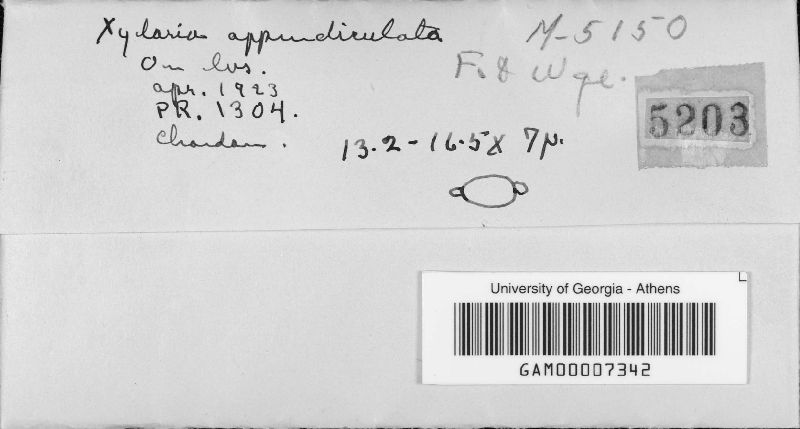 Xylaria appendiculata
M-5150
On lvs.
F. & Wge.
apr. 1923
5203
PR. 1304.
Chardon.
13.2-16.5 x 7µ.
University of Georgia - Athens
GAM00007342